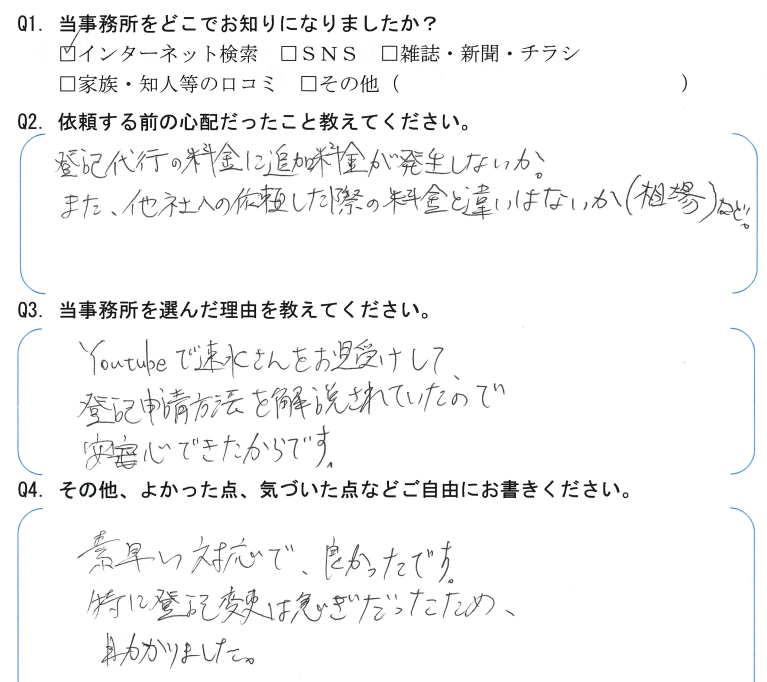 Q1. 当事務所をどこでお知りになりましたか？
☑インターネット検索　□ＳＮＳ　□雑誌・新聞・チラシ
□家族・知人等の口コミ　□その他（　　　　　　　　　　　　　　）
Q2. 依頼する前の心配だったこと教えてください。
登記代行の料金に追加料金が発生しないか。
また、他社への依頼した際の料金と違いはないか(相場)など。
Q3. 当事務所を選んだ理由を教えてください。
Youtubeで速水さんをお見受けして、
登記申請方法を解説されていたので
安心できたからです。
Q4. その他、よかった点、気づいた点などご自由にお書きください。
素早い対応で、良かったです。
特に登記変更は急ぎだったため、
助かりました。